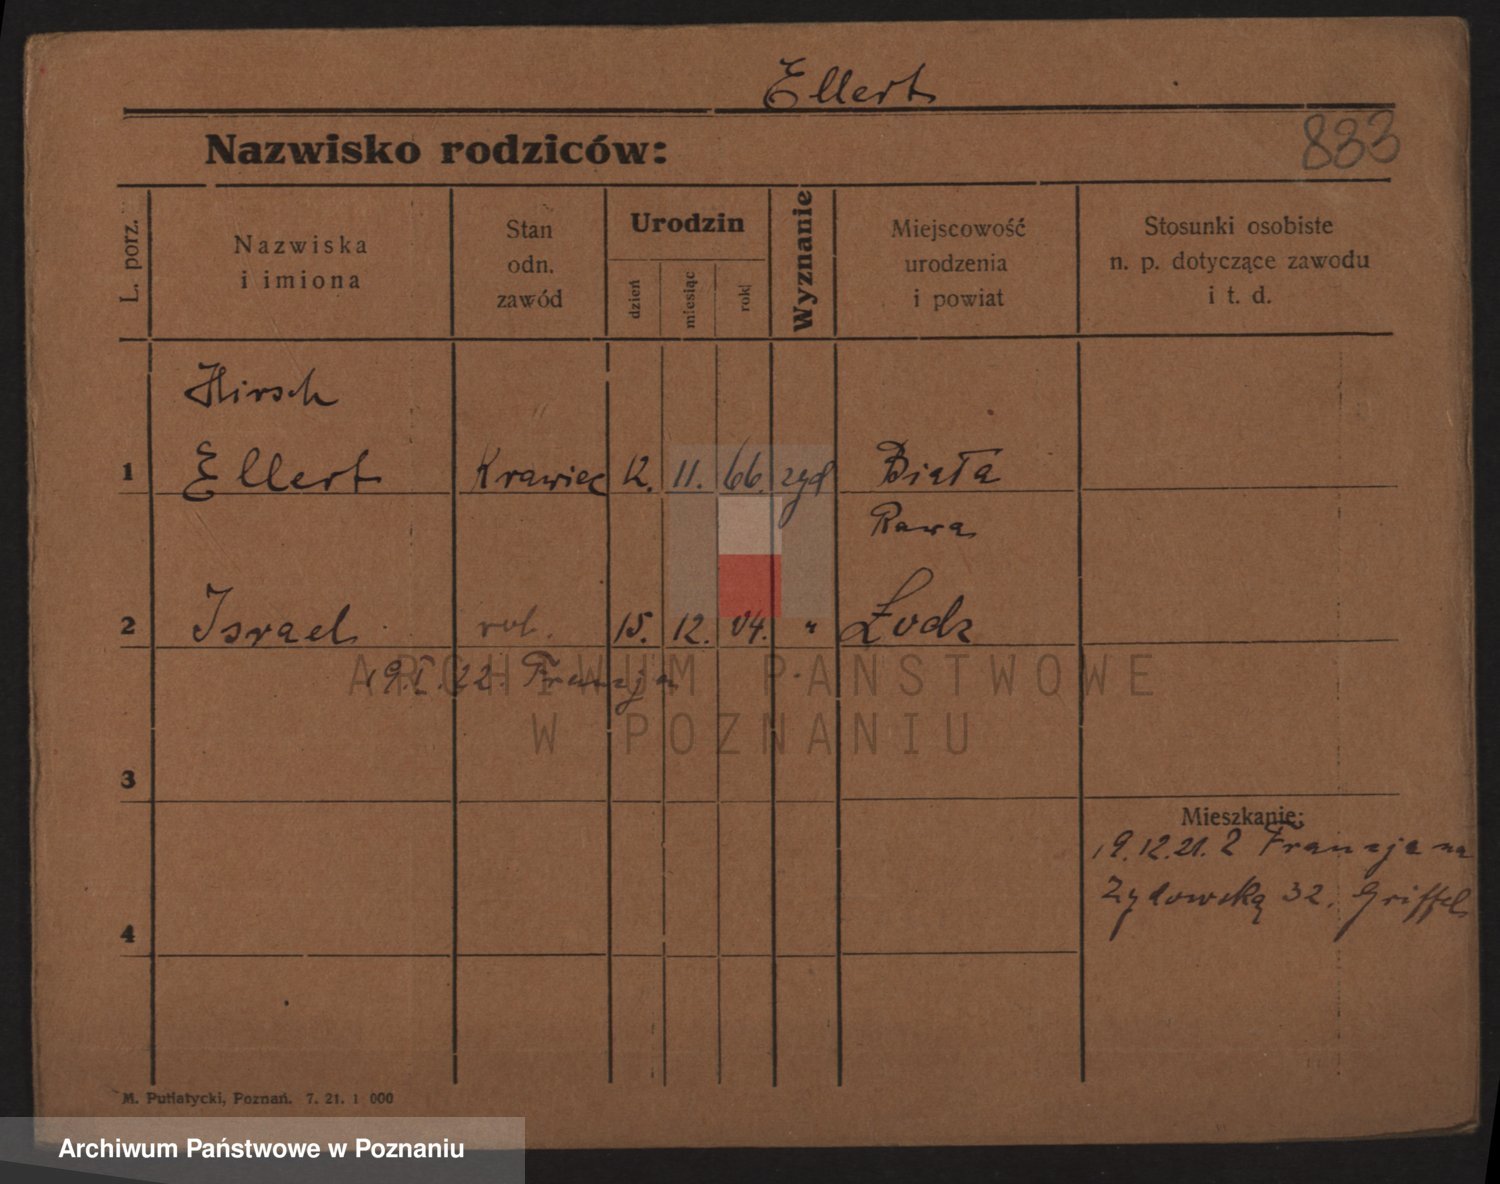 Ellert
Nazwisko rodziców:
833
L. porz.
Nazwiska
i imiona
Stan
odn.
zawód
Urodzin
dzień
miesiąc
rok
Wyznanie
Miejscowość
urodzenia
i powiat
Stosunki osobiste
n. p. dotyczące zawodu
i t. d.
Hirsch
1 Ellert Krawiec 12. 11. 66. żyd Biała
Rawa
2 Israel rob. 15. 12. 04. " Łodz
19.I.22. Francja
ARCHIWUM PAŃSTWOWE
W POZNANIU
3
Mieszkanie:
19.12.21. 2 Francja na
Zydowską 32. Griffel
4
M. Putiatycki, Poznań. 7. 21. 1 000
Archiwum Państwowe w Poznaniu